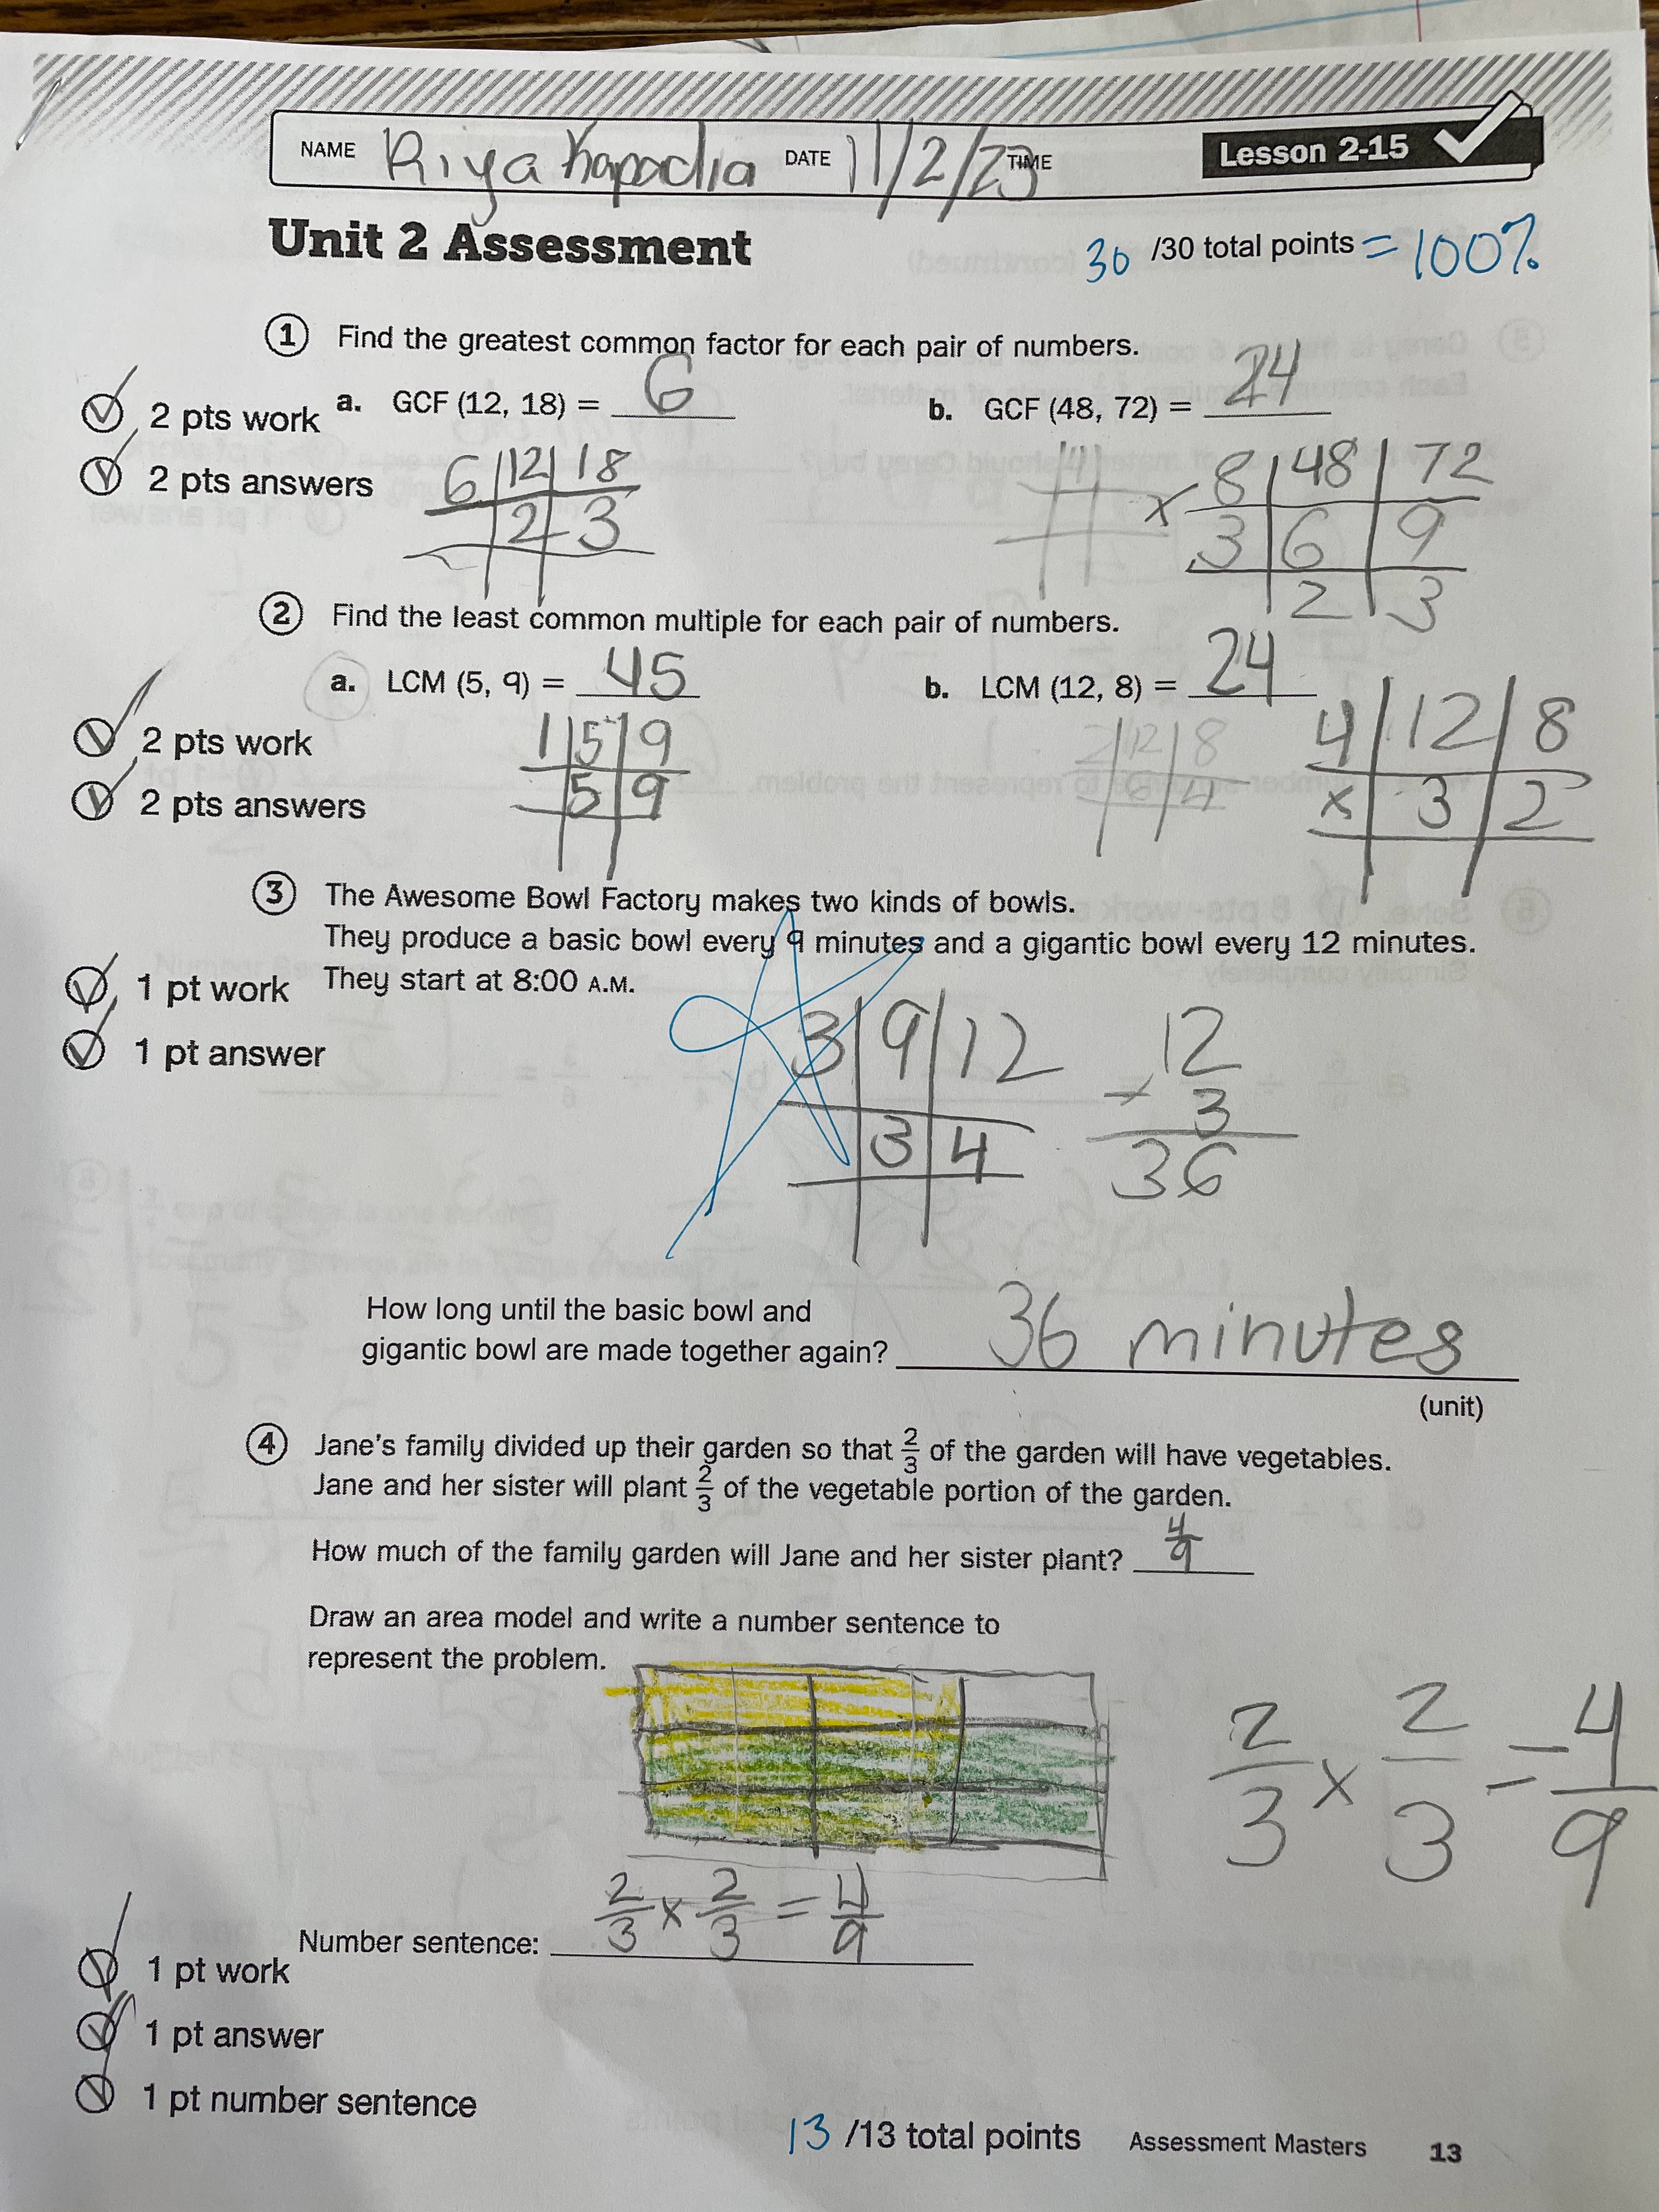 NAME Riya Kapadia DATE 11/2/23 TIME Lesson 2-15
Unit 2 Assessment
30 /30 total points = 100%
① Find the greatest common factor for each pair of numbers.
2 pts work a. GCF (12, 18) = 6 b. GCF (48, 72) = 24
2 pts answers
6 12 18
2 3
x 8 48 72
3 6 9
2 3
② Find the least common multiple for each pair of numbers.
a. LCM (5, 9) = 45 b. LCM (12, 8) = 24
2 pts work
2 pts answers
1 5 9
5 9
2 12 8
6 4
4 12 8
x 3 2
③ The Awesome Bowl Factory makes two kinds of bowls.
They produce a basic bowl every 9 minutes and a gigantic bowl every 12 minutes.
They start at 8:00 A.M.
1 pt work
1 pt answer
3 9 12
3 4
12
x 3
36
How long until the basic bowl and
gigantic bowl are made together again? 36 minutes
(unit)
④ Jane's family divided up their garden so that 2/3 of the garden will have vegetables.
Jane and her sister will plant 2/3 of the vegetable portion of the garden.
How much of the family garden will Jane and her sister plant? 4/9
Draw an area model and write a number sentence to
represent the problem.
2/3 x 2/3 = 4/9
Number sentence: 2/3 x 2/3 = 4/9
1 pt work
1 pt answer
1 pt number sentence
13 /13 total points Assessment Masters 13